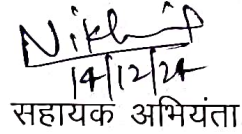 Nikhil
14/12/24
सहायक अभियंता